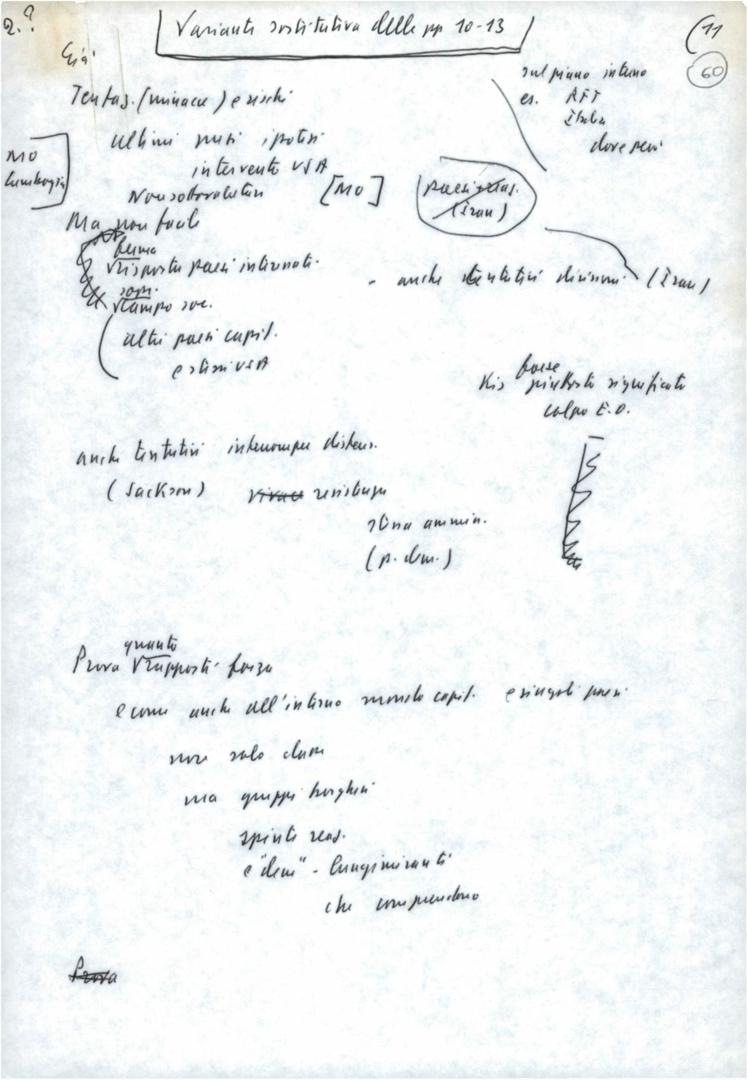 2.?
Variante sostitutiva delle pp 10-13
11
60
Già
sul piano interno
es. RFT
Italia
dove però
Tentas. (minacce) e rischi
ultimi mesi ipotesi
intervento USA
MO
Non sottovalutare [MO]
paesi
(Iran)
Ma non facile
ferma
risposta paesi interessati.
- anche tentativi divisioni. (Iran)
campo soc.
altri paesi capit.
e stessi USA
Kis forse piuttosto significato
colpo E.O.
anche tentativi interrompere distens.
(Jackson) resistenze
stessa ammin.
(p. dem.)
quanto
Prova rapporti forza
e come anche all'interno mondo capit. e singoli paesi
non solo classe
ma gruppi borghesi
spinte reaz.
e "dem" - lungimiranti
che comprendono
Prova